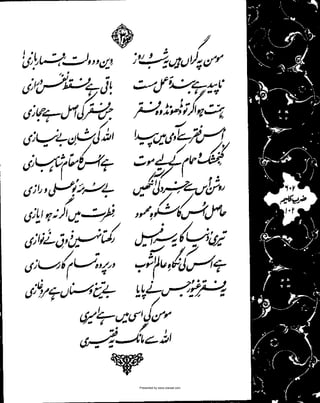 (۳)
مومن پہ گراں ہیں یہ شب و روز    دین و دولت، قمار بازی!
ناپید ہے بندۂ عمل مست    باقی ہے فقط نفس درازی
ہمت ہو اگر تو ڈھونڈ وہ فقر    جس فقر کی اصل ہے حجازی
اس فقر سے آدمی میں پیدا    اللہ کی شانِ بے نیازی
کنجشک و حمام کے لیے موت    ہے اس کا مقام شاہبازی
روشن اس سے خرد کی آنکھیں    بے سرمۂ بوعلی و رازی
حاصل اس کا شکوہِ محمود    فطرت میں اگر نہ ہو ایازی
تیری دنیا کا یہ سرافیل    رکھتا نہیں ذوقِ نے نوازی
ہے اس کی نگاہ عالم آشوب    درپردہ تمام کارسازی
یہ فقرِ غیور جس نے پایا    بے تیغ و سناں ہے مردِ غازی
مومن کی اسی میں ہے امیری
اللہ سے مانگ یہ فقیری
۶۰۲
ضربِ کلیم
۱۰۲